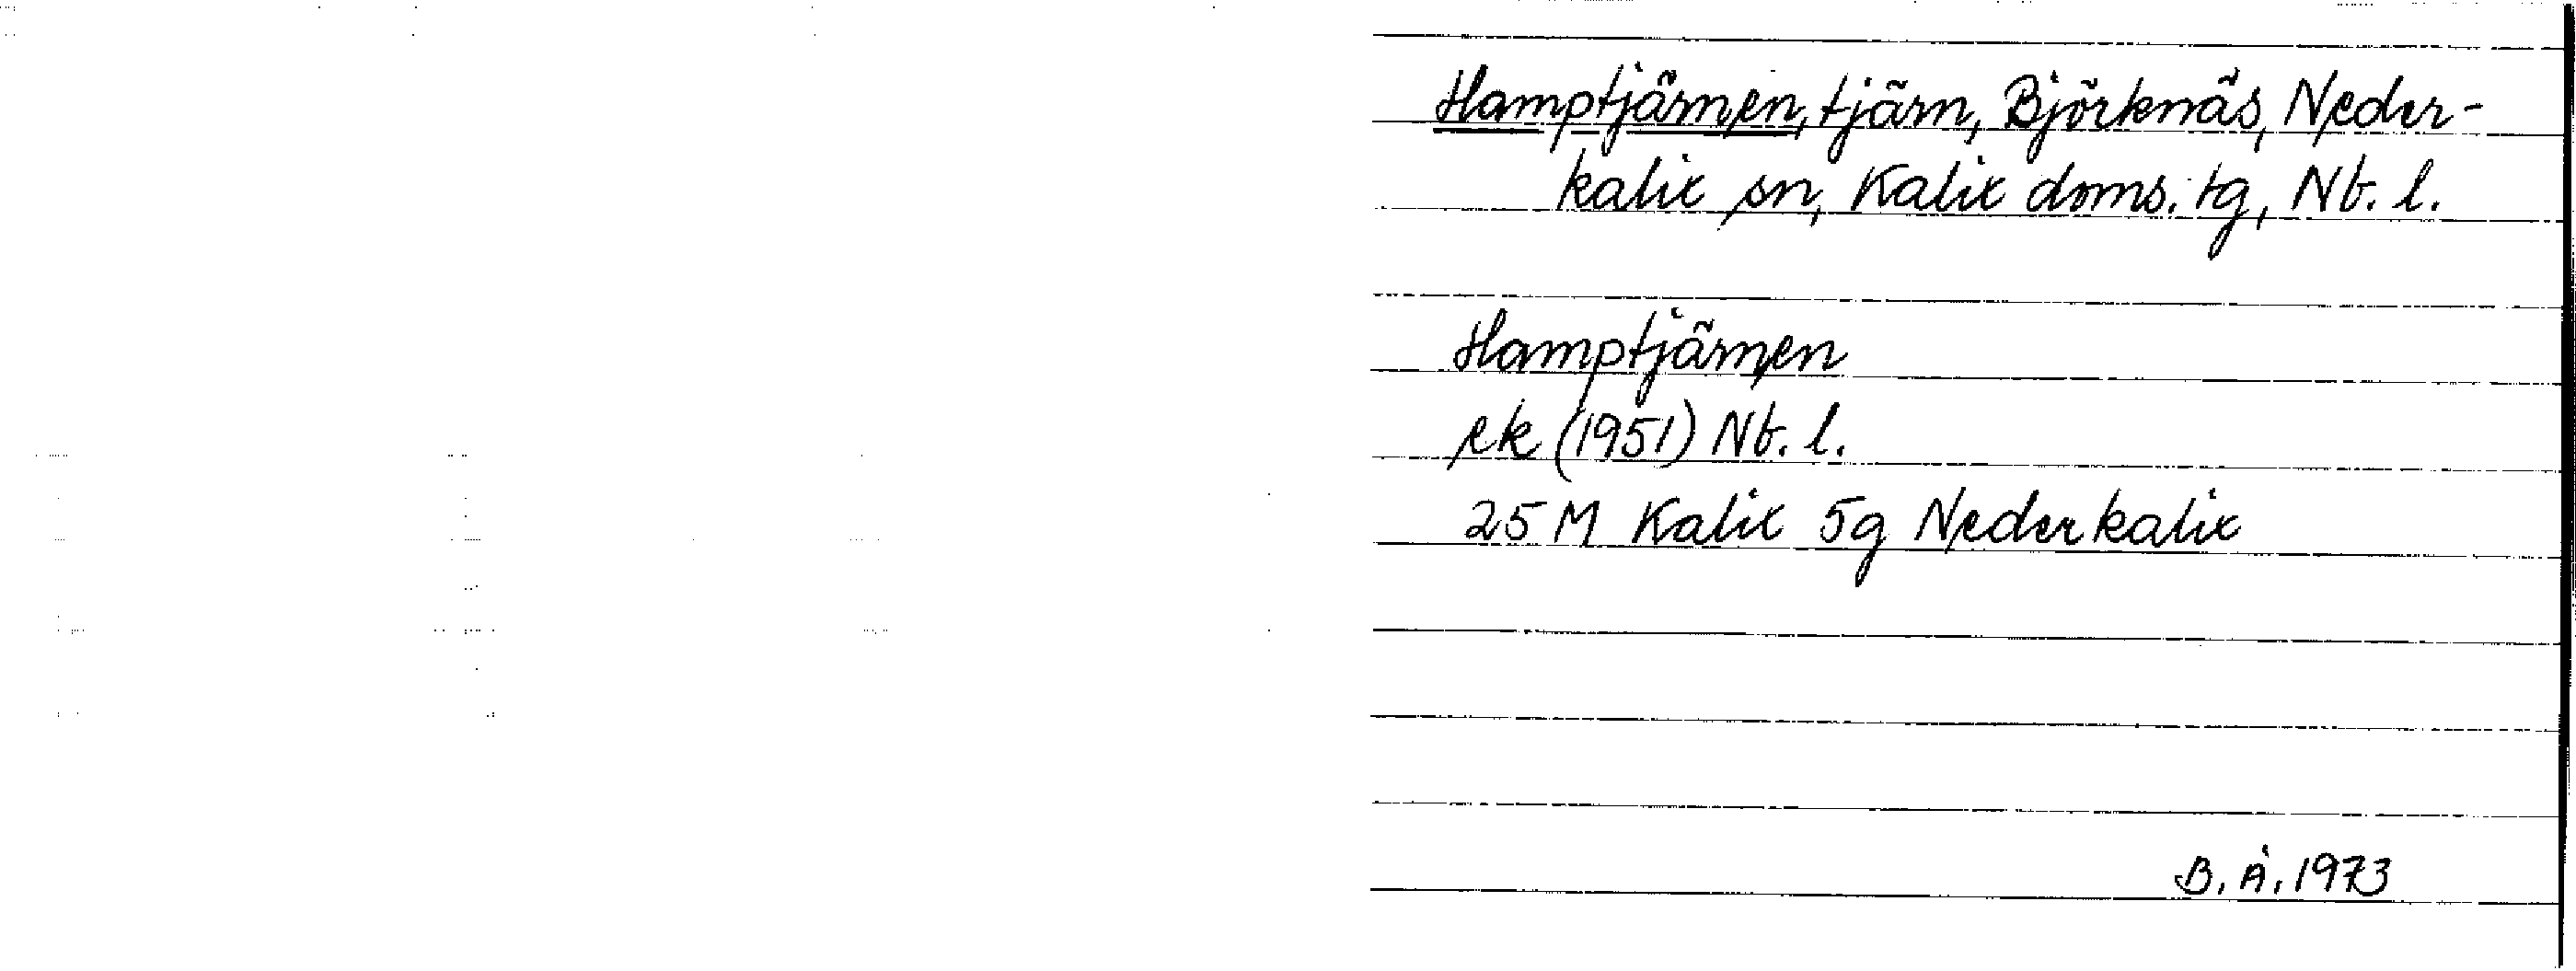 Hamptjärnen, tjärn, Björknäs, Neder-
kalix sn, Kalix doms. tg, Nb. l.
Hamptjärnen
ek (1951) Nb. l.
25 M Kalix 5g Nederkalix
B. Å. 1973